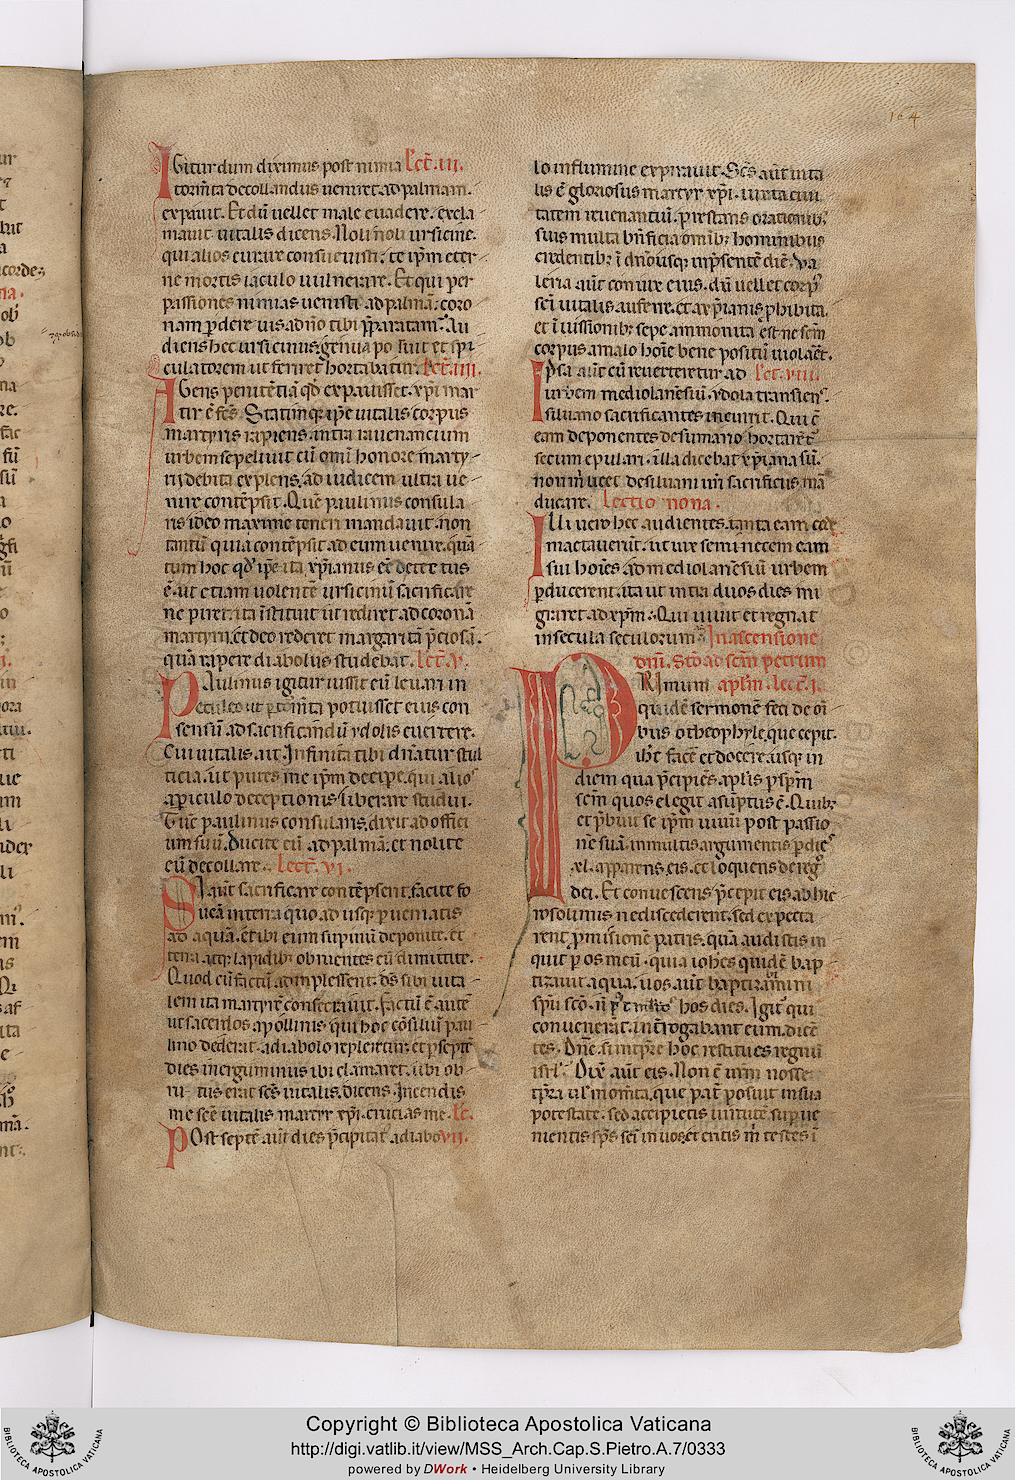 164
Igitur dum diximus post nimia lect̄. iii.
torm̄ta decollandus ueniret ad palmam.
expauit. Et dū uellet male euadere. excla
mauit uitalis dicens. Noli noli ursicine.
qui alios curare consueuisti. te ip̄m eter
ne mortis iaculo uulnerare. Et qui per
passiones nimias uenisti ad palmā. coro
nam ꝑdere uis a dn̄o tibi p̄paratam. Au
diens hec ursicinus. genua posuit et spi
culatorem ut feriret hortabatur. lect̄. iiii.
Agens penitētiā qd̓ expauisset. xp̄i mar
tir ē fc̄s. Statimqꝫ ip̄e uitalis corpus
martyris rapiens. intra rauenancium
urbem sepeliuit cū omī honore marty
rii debita explens. ad iudicem ultra ue
nire contēpsit. Quē paulinus consula
ris ideo maxime teneri mandauit. non
tantū quia contēpsit ad eum uenire. quā
tum hoc qd̓ ip̄e ita xp̄ianus eē detectus
ē. ut etiam uolentē ursicinū sacrificare
ne piret. ita īstituit ut rediret ad coronā
martyrii. et deo rederet margaritā p̄ciosā.
quā rapere diabolus studebat. lect̄. v.
Paulinus igitur iussit eū leuari in
eculeo ut ꝑ torm̄ta potuisset eius con
sensū ad sacrificandū ydolis euertere.
Cui uitalis ait. Infinita tibi dn̄atur stul
ticia. ut putes me ip̄m decipe. qui alios
a ꝑiculo deceptionis liberare studui.
Tūc paulinus consularis. dixit ad offici
um suū. Ducite eū ad palmā. et nolite
eū decollare. lect̄. vi.
Si aūt sacrificare contēpserit. facite fo
ueā in terra quo ad usqꝫ ꝑueniatis
ad aquā. et ibi eum supinū deponite. et
terra atqꝫ lapidibꝫ obruentes eū dimittite.
Quod cū factū adimplessent. ds̄ sibi uita
lem ita martyrē consecrauit. Factū ē autē
ut sacerdos apollinis. qui hoc cōsiliū pau
lino dederat. a diabolo repleretur. et ꝑ septē
dies inerguminus ibi clamaret. ubi ob
rutus erat sc̄s uitalis. dicens. Incendis
me sc̄e uitalis martyr xp̄i. crucias me. lc̄.
Post septē aūt dies p̄cipitat̓ a diabo vii.
lo in flumine expirauit. Sc̄s aūt uita
lis ē gloriosus martyr xp̄i. iuxta ciui
tatem rauenantiū. p̄restans orationibꝫ
suis multa bn̄ficia omībꝫ hominibus
credentibꝫ ī dn̄o usqꝫ in p̄sentē diē. Va
leria aūt coniux eius. dū uellet corpꝰ
sc̄i uitalis auferre. et a xp̄ianis ꝓhibita.
et ī uissionibꝫ sepe ammonita est. ne sc̄m
corpus a malo hoīe bene positū uiolaret̓.
Ipsa aūt cū reuerteretur ad lect̄. viii.
urbem mediolanēsiū. ydola transiens.
siluano sacrificantes inuenit. Qui cū
eam deponentes de sumario hortarēt̓
secum epulari. illa dicebat. xp̄iana sū.
non m̄ licet de siluani ur̄i sacrificiis mā
ducare. lectio nona.
Illi uero hec audientes. tanta eam cede
mactauerūt. ut uix semi necem eam
sui hoīes. ad mediolanēsiū urbem
ꝑducerent. ita ut intra duos dies mi
graret ad xp̄m. Qui uiuit et regnat
in secula seculorum. In ascensione
dn̄i. Stō ad sc̄m petrum
PRImum apl̄m. lect̄. i.
quidē sermonē feci de oī
bus o theophyle. que cepit.
ih̄c facē et docere. usqꝫ in
diem qua p̄cipiēs aplīs ꝑ sp̄m
sc̄m quos elegit asūptus ē. Quibꝫ
et p̄buit se ip̄m uiuū post passio
nē suā. in multis argumentis ꝑ dieꝰ
.xl. apparens eis. et loquens de regꝰ
dei. Et conuescens p̄cepit eis ab hie
rosolimis ne discederent. sed expecta
rent ꝓmisionē patris. quā audistis in
quit ꝑ os meū. quia ioh̄es quidē bap
tizauit aqua. uos aūt baptizabimini
sp̄u scō. n̄ pꝰt multos hos dies. Igit̓ qui
conuenerāt. int̓rogabant eum. dicē
tes. Dn̄e. si in tp̄re hoc restitues regnū
isrl̄. Dix̄ aūt eis. Non ē ur̄m nosse
tp̄ra ul̓ mom̄ta. que pat̓ posuit in sua
potestate. sed accipietis uirtutē sup̄ue
nientis sp̄s sc̄i in uos. et eritis m̄ testes ī
Copyright © Biblioteca Apostolica Vaticana
http://digi.vatlib.it/view/MSS_Arch.Cap.S.Pietro.A.7/0333
powered by DWork • Heidelberg University Library
BIBLIOTECA APOSTOLICA VATICANA
BIBLIOTECA APOSTOLICA VATICANA